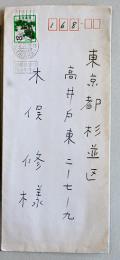 168
東京都杉並区
高井戸東二ー七ー九
木俣修様